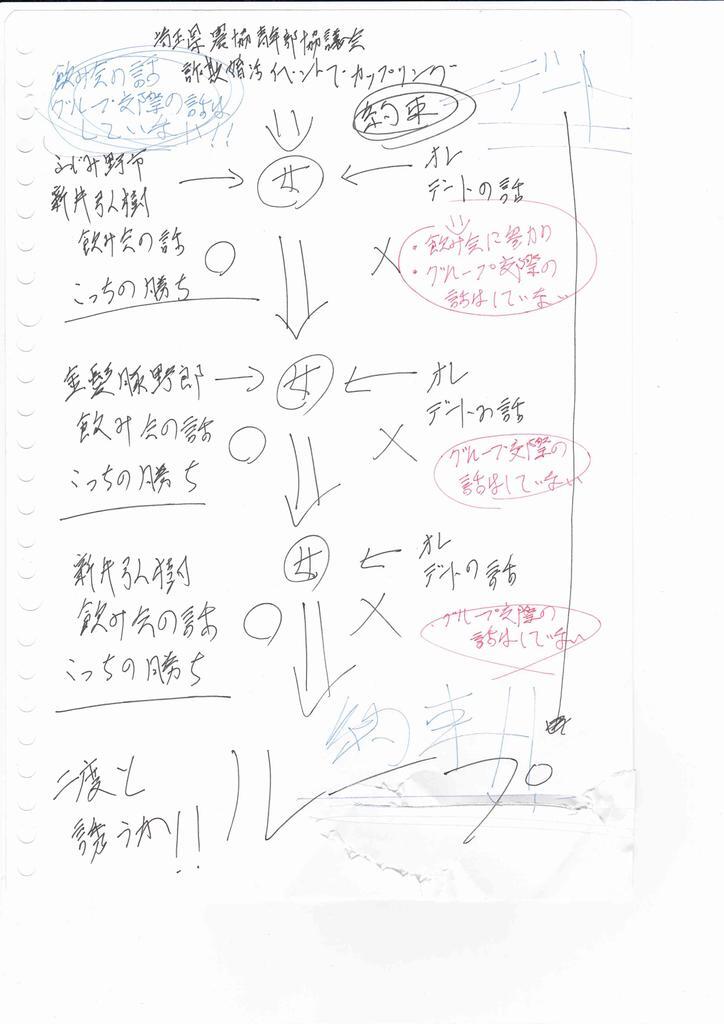 埼玉県農協青年部協議会
詐欺婚活イベントでカップリング
飲み会の話
グループ交際の話は
していない!!!
約束
デート
ふじみ野市
新井弘樹
女
オレ
デートの話
飲み会の話
○
×
・飲み会に参加の
・グループ交際の
話はしていない
こっちの勝ち
金髪豚野郎
女
オレ
デートの話
飲み会の話
○
×
グループ交際の
話はしていない
こっちの勝ち
新井弘樹
女
オレ
デートの話
飲み会の話
○
×
グループ交際の
話はしていない
こっちの勝ち
約束!!
二度と
誘うか!!
ループ